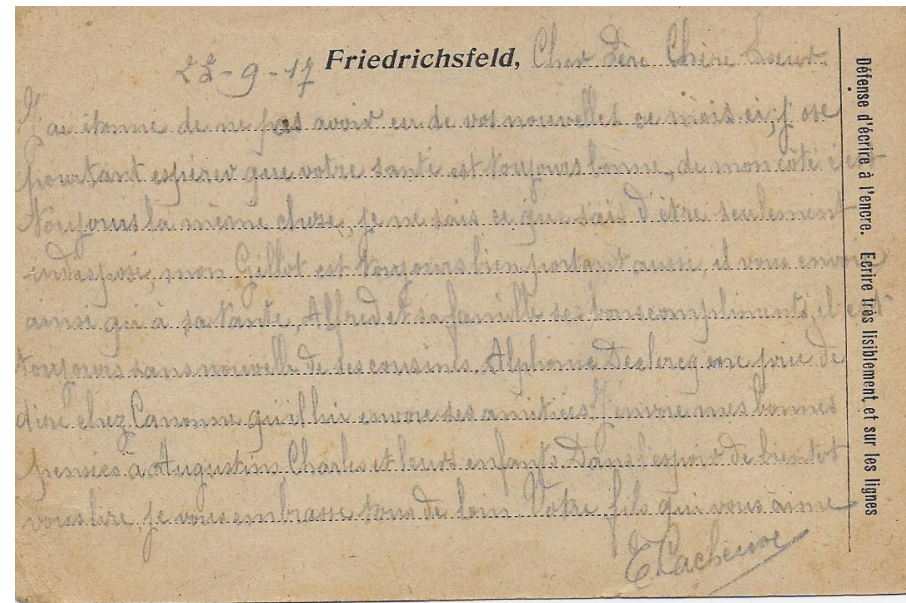 23-9-17 Friedrichsfeld, Cher Père Chère Soeur.
Je
ai étonné de ne pas avoir eu de vos nouvelles ce mois ci, j'ose
pourtant espérer que votre santé est toujours bonne, de mon côté c'est
toujours la même chose, je ne sais ce que s'ais d'être seulement
indisposé, mon Gillot est toujours bien portant aussi, il vous envoie
ainsi qu'à sa tante, Alfred et sa famille ses bons compliments, il est
toujours sans nouvelle de ses cousins. Alphonse Declercq me prie de
dire chez Canonne qu'il lui envoie ses amitiés J'envoie mes bonnes
pensées à Augustin Charles et leurs enfants Dans l'espoir de bientot
vous lire, je vous embrasse tous de loin. Votre fils qui vous aime
Défense d'écrire à l'encre. Ecrire très lisiblement et sur les lignes